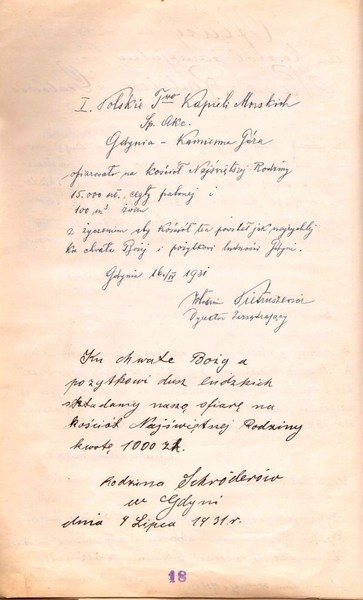 I. Polskie Two Kąpieli Morskich
Sp. Akc.
Gdynia - Kamienna Góra
ofiarowało na kościół Najświętszej Rodziny
15.000 szt. cegły palonej i
100 m³ żwiru
z życzeniem aby Kościół ten powstał jak najrychlej
ku chwale Bożej i pożytkowi ludności Gdyni.
Gdynia 16/IV 1931
Dyrektor Zarządzający
Ku chwale Bożej a
pożytkowi dusz ludzkich
składamy naszą ofiarę na
kościół Najświętszej Rodziny
kwotę 1000 zł.
Rodzina Schröderów
w Gdyni
dnia 9 Lipca 1931 r.
18